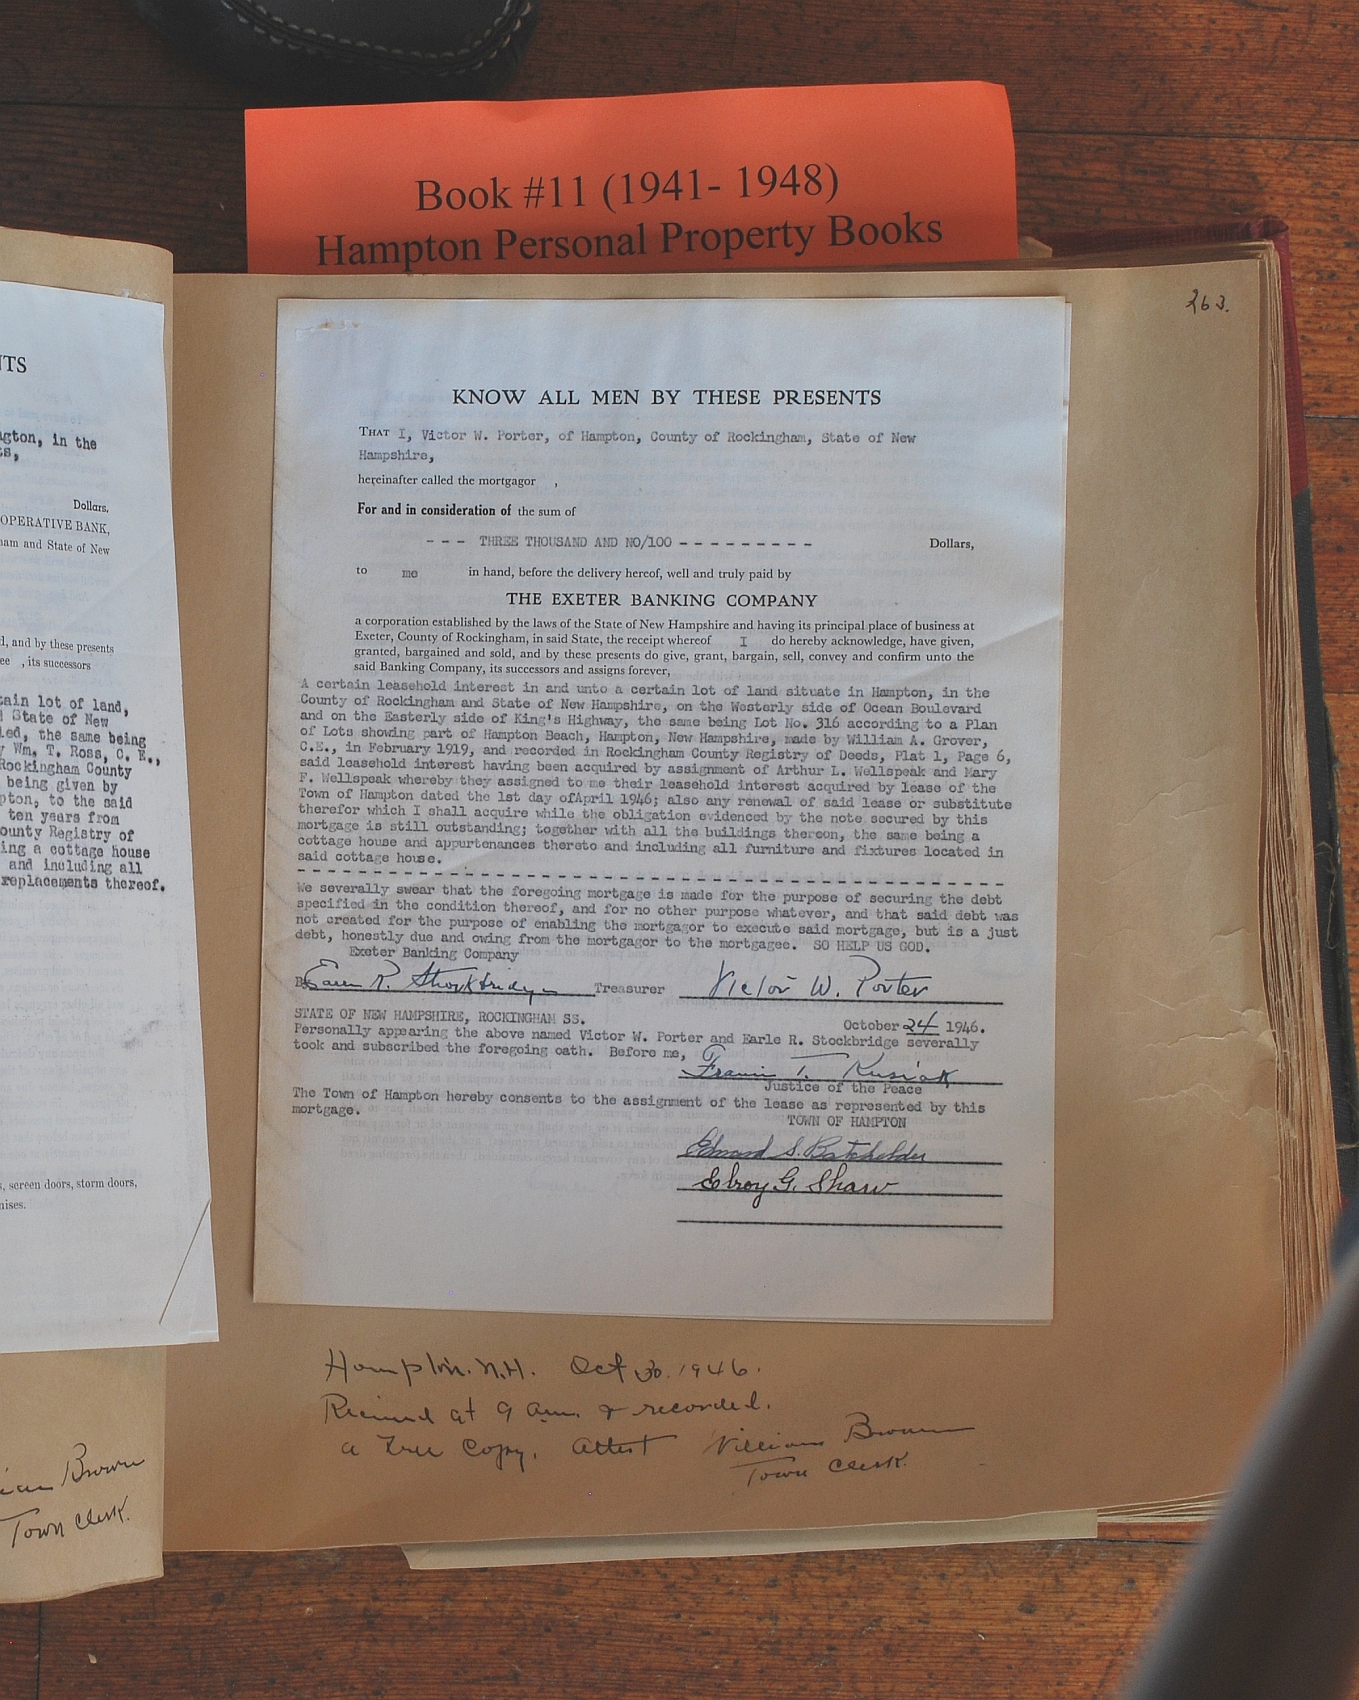 Book #11 (1941- 1948)
Hampton Personal Property Books
263.
NTS
gton, in the
ts,
Dollars,
OPERATIVE BANK,
ham and State of New
d, and by these presents
ee , its successors
tain lot of land,
State of New
ed, the same being
y Wm. T. Ross, C. E.,
Rockingham County
being given by
pton, to the said
ten years from
ounty Registry of
ing a cottage house
and including all
replacements thereof.
, screen doors, storm doors,
ises.
Brown
Town Clerk.
KNOW ALL MEN BY THESE PRESENTS
THAT I, Victor W. Porter, of Hampton, County of Rockingham, State of New
Hampshire,
hereinafter called the mortgagor ,
For and in consideration of the sum of
- - - THREE THOUSAND AND NO/100 - - - - - - - - - Dollars,
to me in hand, before the delivery hereof, well and truly paid by
THE EXETER BANKING COMPANY
a corporation established by the laws of the State of New Hampshire and having its principal place of business at
Exeter, County of Rockingham, in said State, the receipt whereof I do hereby acknowledge, have given,
granted, bargained and sold, and by these presents do give, grant, bargain, sell, convey and confirm unto the
said Banking Company, its successors and assigns forever,
A certain leasehold interest in and unto a certain lot of land situate in Hampton, in the
County of Rockingham and State of New Hampshire, on the Westerly side of Ocean Boulevard
and on the Easterly side of King's Highway, the same being Lot No. 316 according to a Plan
of Lots showing part of Hampton Beach, Hampton, New Hampshire, made by William A. Grover,
C.E., in February 1919, and recorded in Rockingham County Registry of Deeds, Plat 1, Page 6,
said leasehold interest having been acquired by assignment of Arthur L. Wellspeak and Mary
F. Wellspeak whereby they assigned to me their leasehold interest acquired by lease of the
Town of Hampton dated the 1st day ofApril 1946; also any renewal of said lease or substitute
therefor which I shall acquire while the obligation evidenced by the note secured by this
mortgage is still outstanding; together with all the buildings thereon, the same being a
cottage house and appurtenances thereto and including all furniture and fixtures located in
said cottage house.
We severally swear that the foregoing mortgage is made for the purpose of securing the debt
specified in the condition thereof, and for no other purpose whatever, and that said debt was
not created for the purpose of enabling the mortgagor to execute said mortgage, but is a just
debt, honestly due and owing from the mortgagor to the mortgagee. SO HELP US GOD.
Exeter Banking Company
By Earle R. Stockbridge Treasurer Victor W. Porter
STATE OF NEW HAMPSHIRE, ROCKINGHAM SS. October 24 1946.
Personally appearing the above named Victor W. Porter and Earle R. Stockbridge severally
took and subscribed the foregoing oath. Before me, Francis T. Kusiak
Justice of the Peace
The Town of Hampton hereby consents to the assignment of the lease as represented by this
mortgage.
TOWN OF HAMPTON
Edward S. Batchelder
Elroy G. Shaw
Hampton. N.H. Oct 30. 1946.
Received at 9 a.m. & recorded.
a True Copy. Attest William Brown
Town Clerk.